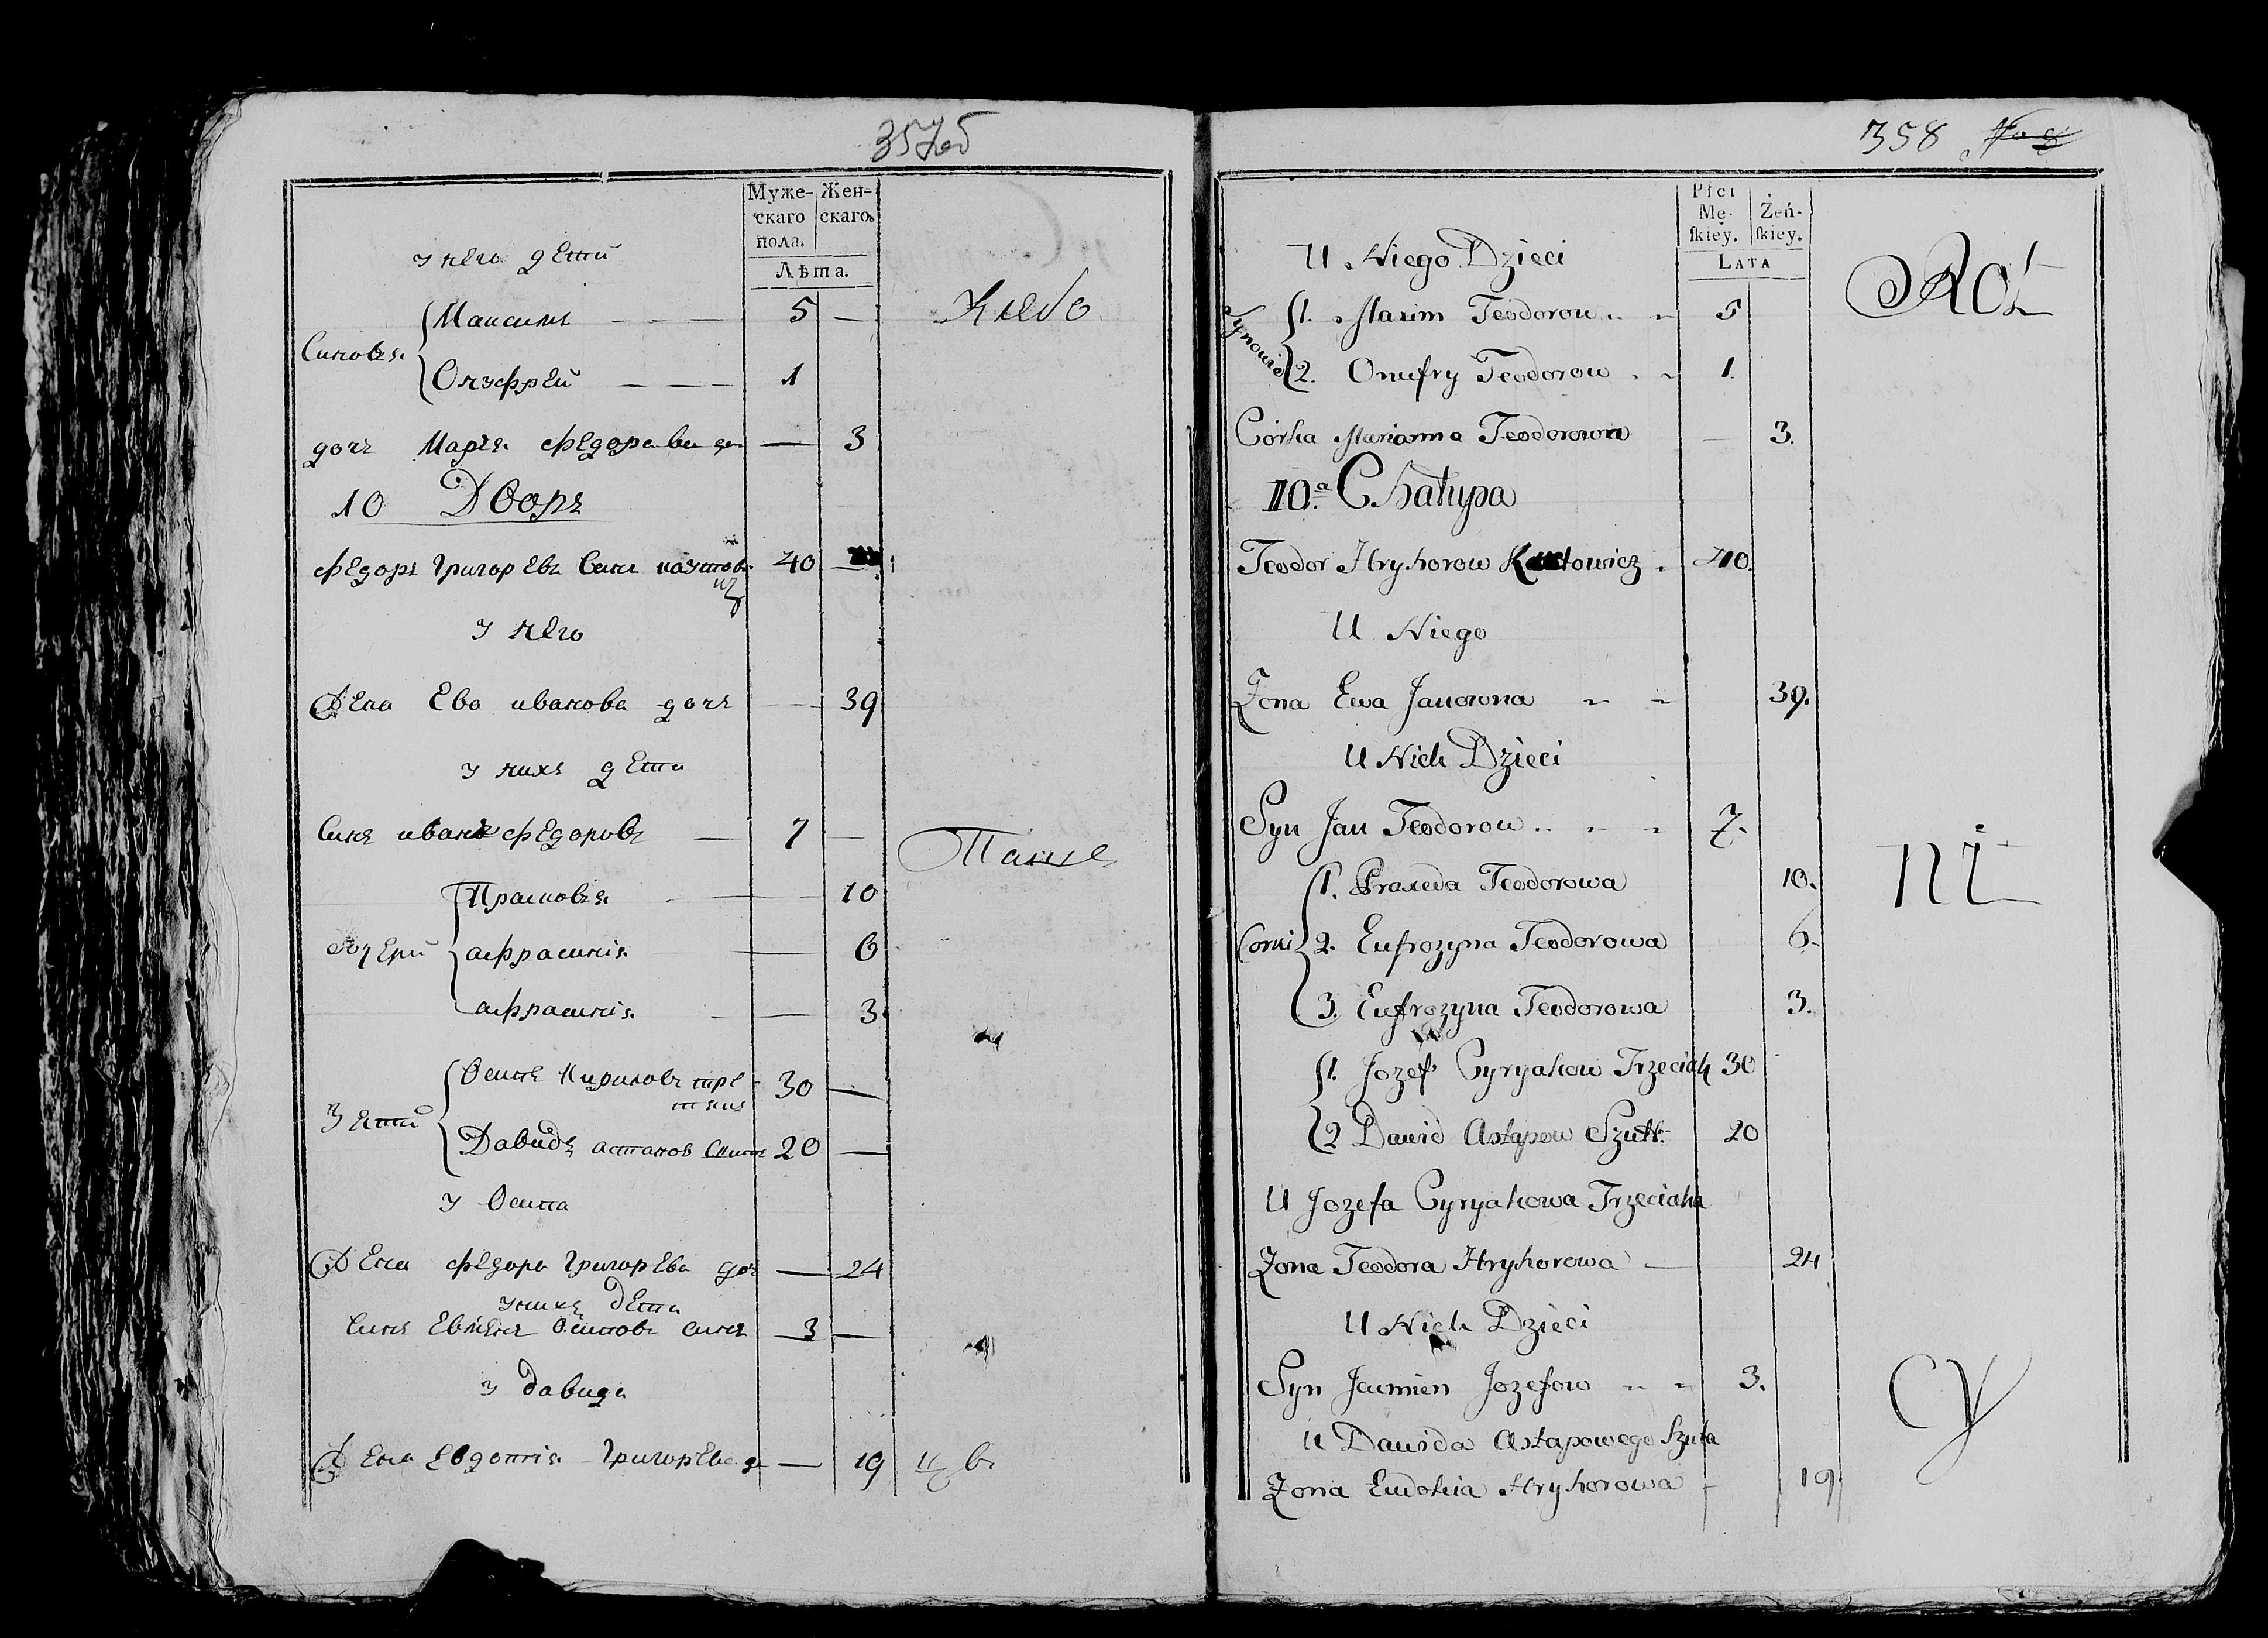 357об
Муже-
скаго
пола.
Жен-
скаго.
Лѣта.
у него дети
Синовя
Максимъ 5 —
Онуфрей 1
дочъ Маръя федорова до — 3
10 Дворъ
федоръ григоревъ Синъ 40
у него
Жена Ева иванова дочъ — 39
у нихъ дети
Синъ иванъ федоровъ — 7 —
дочери
Прасковъя 10
афрасиния 6
афрасиния 3
Зети
Осипъ Кириловъ тре- 30 —
тякъ
Давидъ астапов 20 —
у Осипа
Жена федора григорева доч — 24
у нихъ дети
Синъ Евменъ Осиповъ синъ 3 —
у Давида
Жена Евдотия григорева д — 19
358
Płci
Mę-
skiey.
Żeń-
skiey.
LATA
U Niego Dzieci
Synowie
1. Maxim Teodorow 5
2. Onufry Teodorow 1.
Córka Marianna Teodorowa 3.
10a Chałupa
Teodor Hryhorow 40.
U Niego
Zona Ewa Janowna 39.
U Nich Dzieci
Syn Jan Teodorow 7.
Corki
1. Praxeda Teodorowa 10.
2. Eufrozyna Teodorowa 6.
3. Eufrozyna Teodorowa 3.
1. Jozef Cyryakow Trzeciak 30
2 Dawid Astapow Szutt 20
U Jozefa Cyryakowa Trzeciaka
Zona Teodora Hryhorowa 24
U Nich Dzieci
Syn Jaumien Jozefow 3.
U Dawida Astapowego Szuta
Zona Eudokia Hryhorowa 19